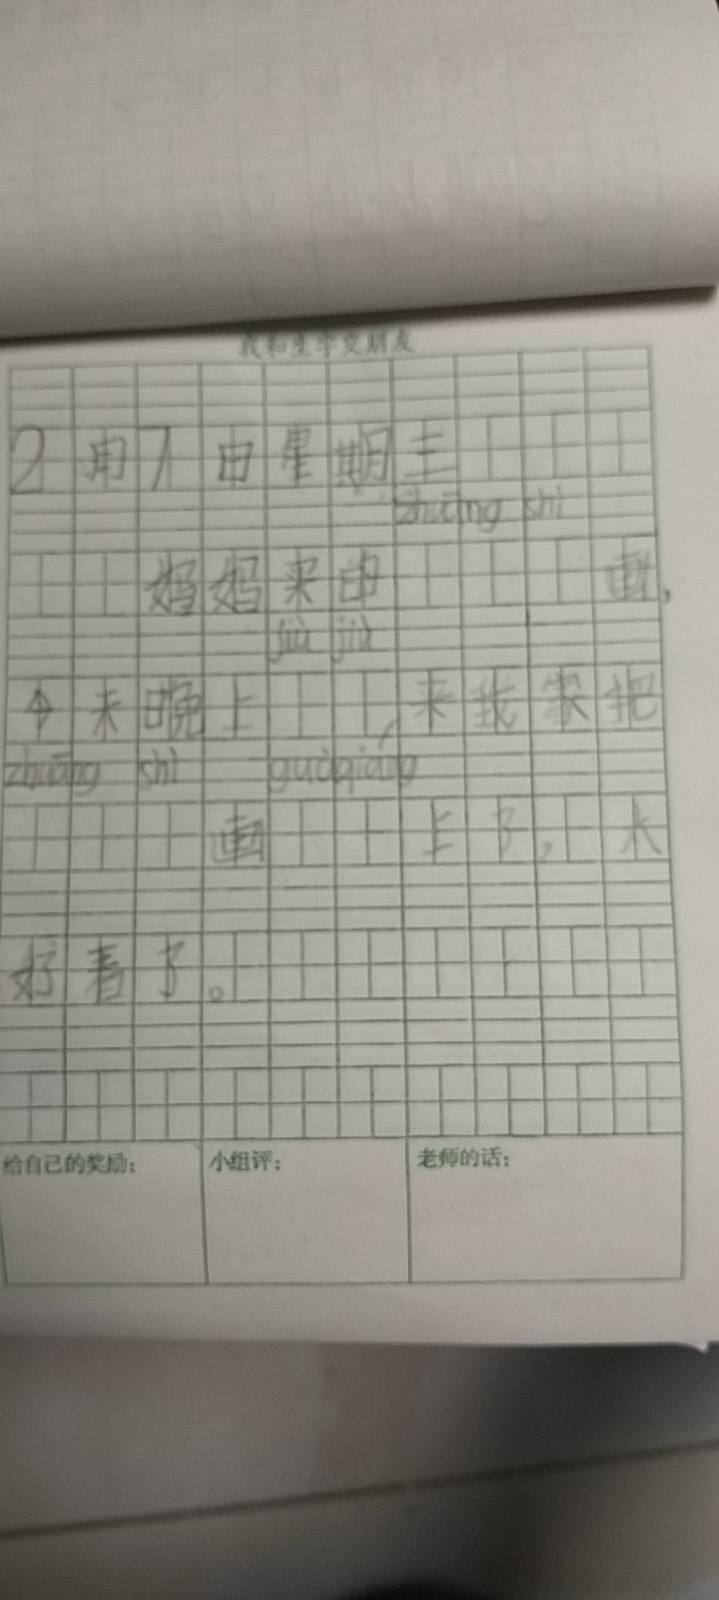 我和生字交朋友
2月7日星期三
zhuāng shì
妈妈买的画,
jiù jiu
今天晚上来我家把
zhuāng shì guà qiáng
画上了,太
好看了。
给自己的奖励: 小组评: 老师的话: